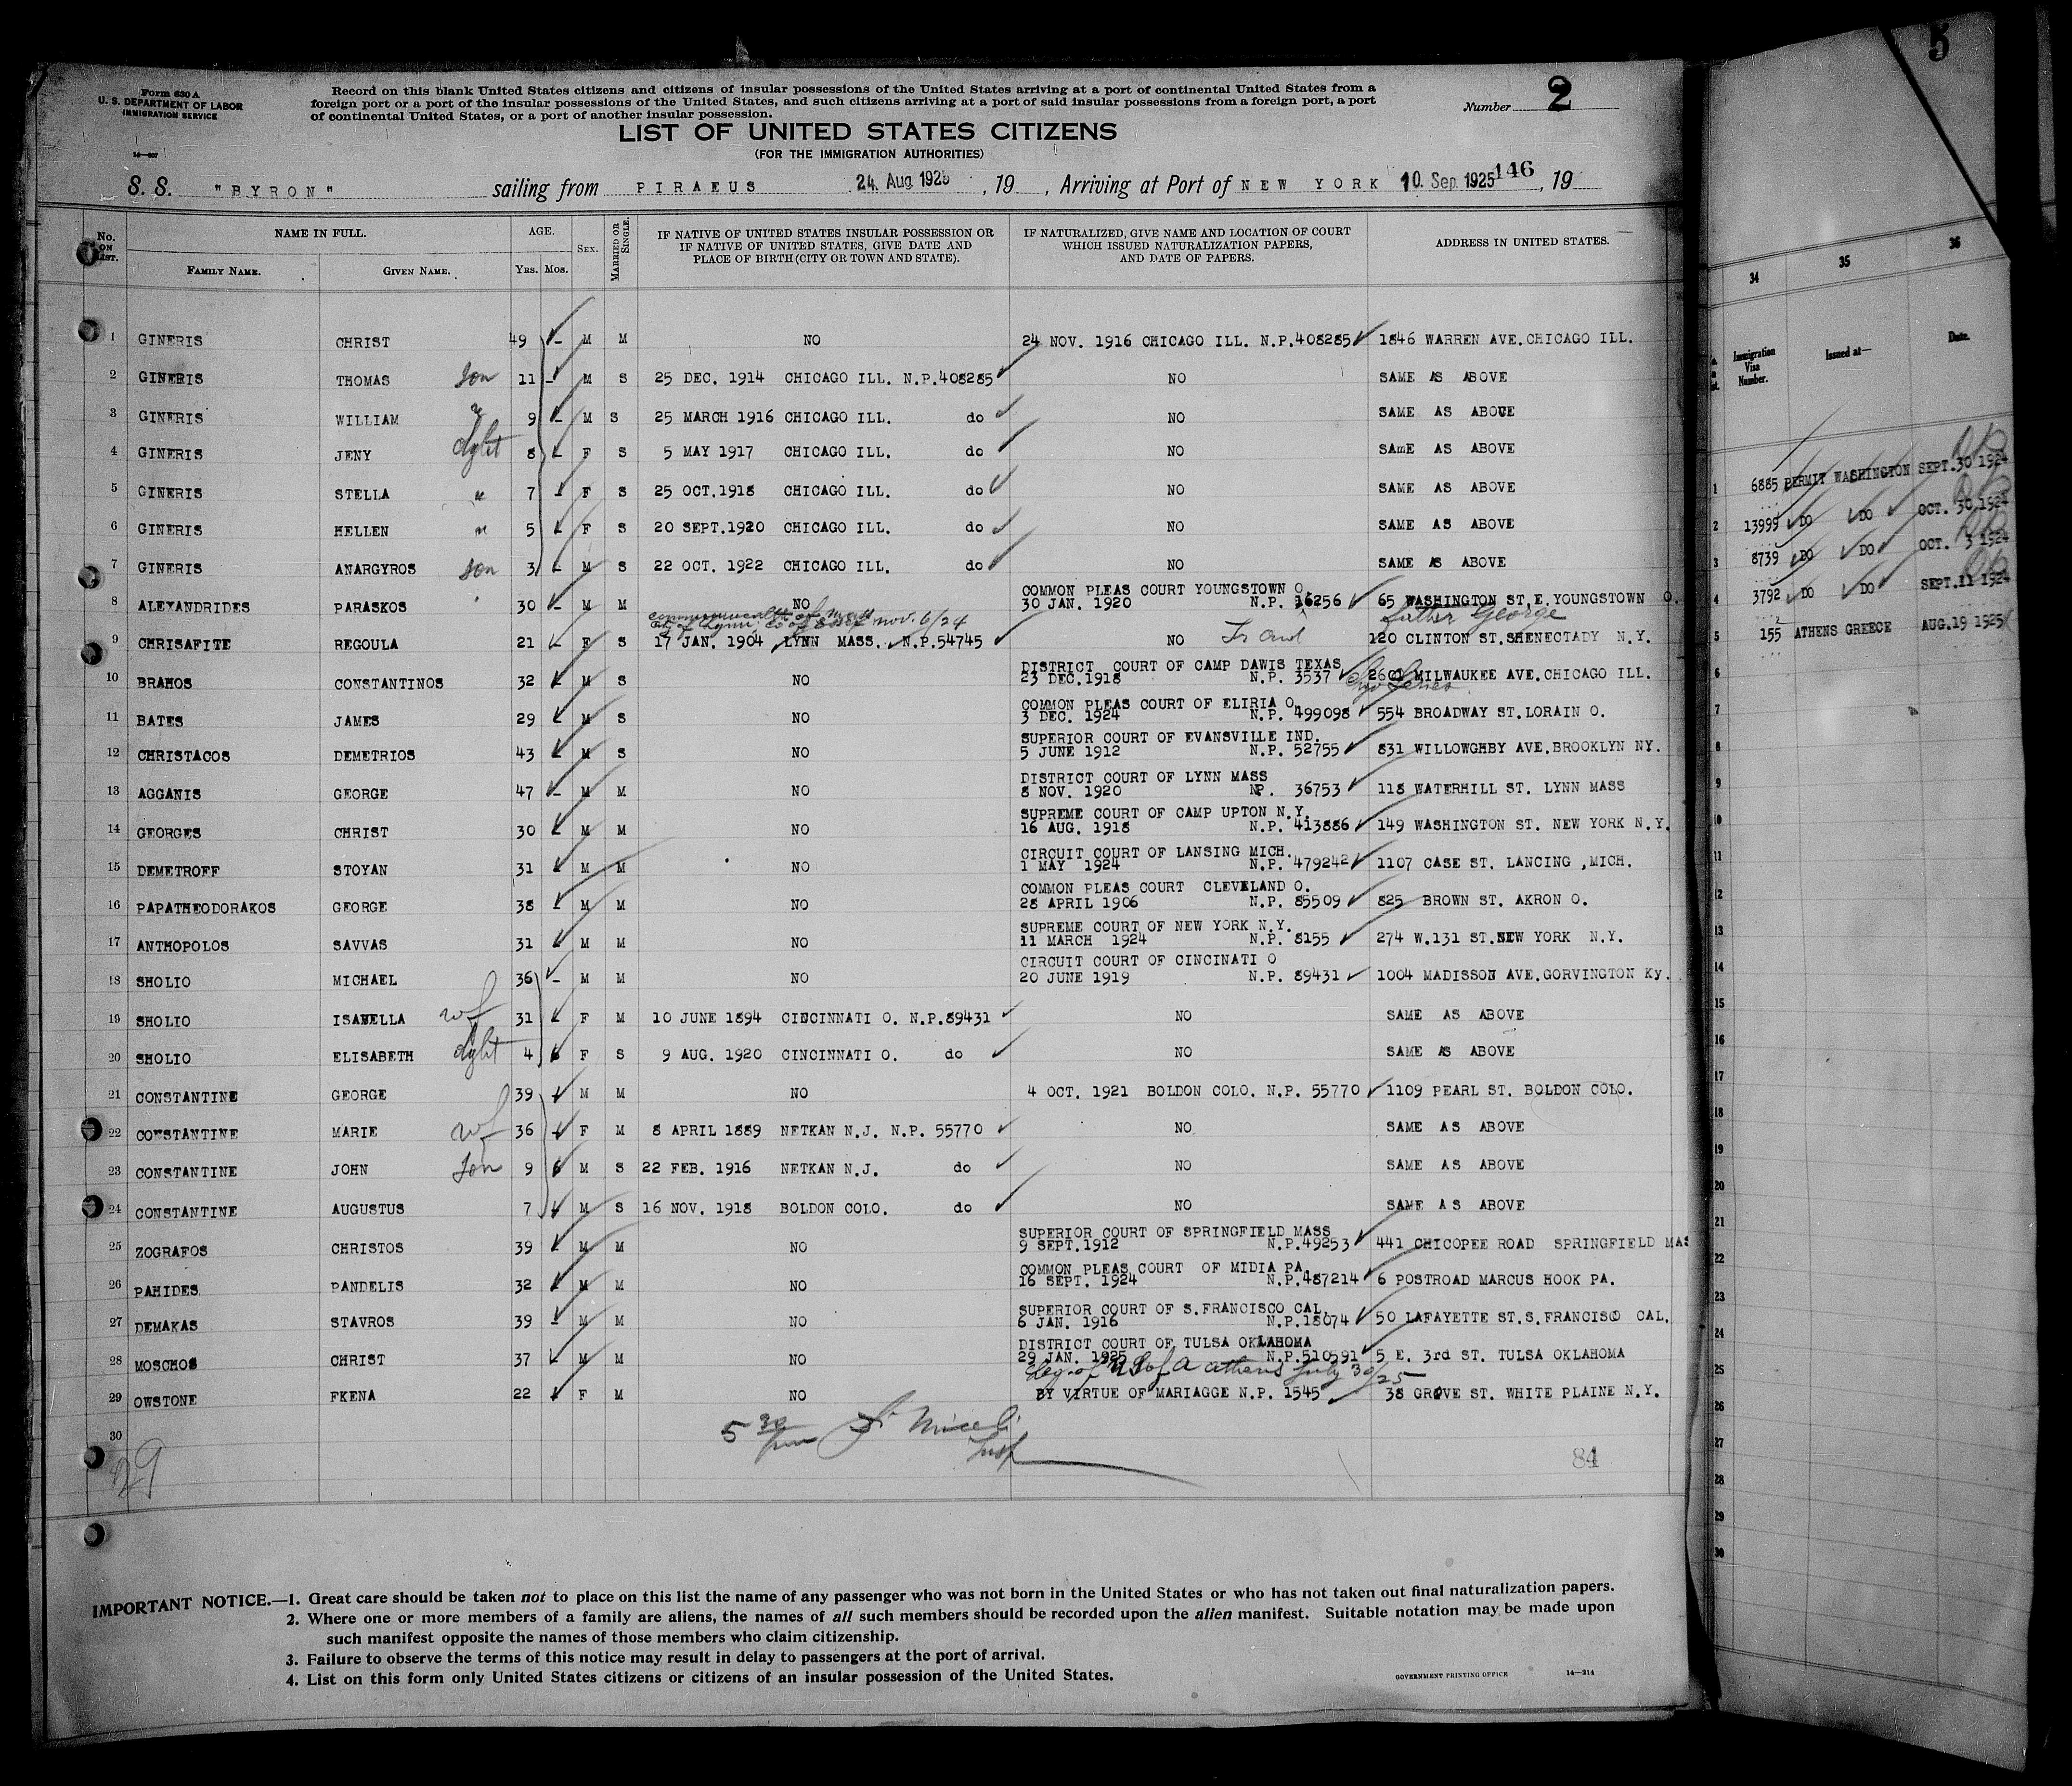 Form 630 A
U. S. DEPARTMENT OF LABOR
IMMIGRATION SERVICE
Record on this blank United States citizens and citizens of insular possessions of the United States arriving at a port of continental United States from a
foreign port or a port of the insular possessions of the United States, and such citizens arriving at a port of said insular possessions from a foreign port, a port
of continental United States, or a port of another insular possession.
Number 2
LIST OF UNITED STATES CITIZENS
(FOR THE IMMIGRATION AUTHORITIES)
S. S. "BYRON" sailing from PIRAEUS 24. Aug 1925, 19 , Arriving at Port of NEW YORK 10. Sep. 1925 146, 19
No. ON LIST. NAME IN FULL. AGE. SEX. MARRIED OR SINGLE. IF NATIVE OF UNITED STATES INSULAR POSSESSION OR IF NATIVE OF UNITED STATES, GIVE DATE AND PLACE OF BIRTH (CITY OR TOWN AND STATE). IF NATURALIZED, GIVE NAME AND LOCATION OF COURT WHICH ISSUED NATURALIZATION PAPERS, AND DATE OF PAPERS. ADDRESS IN UNITED STATES.
FAMILY NAME. GIVEN NAME. YRS. MOS.
1 GINERIS CHRIST 49 – M M NO 24 NOV. 1916 CHICAGO ILL. N.P.408285 1846 WARREN AVE.CHICAGO ILL.
2 GINERIS THOMAS son 11 – M S 25 DEC. 1914 CHICAGO ILL. N.P.408285 NO SAME AS ABOVE
3 GINERIS WILLIAM 9 – M S 25 MARCH 1916 CHICAGO ILL. do NO SAME AS ABOVE
4 GINERIS JENY dght 8 – F S 5 MAY 1917 CHICAGO ILL. do NO SAmE AS ABOVE
5 GINERIS STELLA " 7 – F S 25 OCT.1918 CHICAGO ILL. do NO SAME AS ABOVE
6 GINERIS HELLEN " 5 – F S 20 SEPT.1920 CHICAGO ILL. do NO SAME AS ABOVE
7 GINERIS ANARGYROS son 3 – M S 22 OCT. 1922 CHICAGO ILL. do NO SAME AS ABOVE
COMMON PLEAS COURT YOUNGSTOWN O.
8 ALEXANDRIDES PARASKOS 30 – M M NO 30 JAN. 1920 N.P. 16256 65 WASHINGTON ST.E.YOUNGSTOWN O.
Commonwealth of Mass
City of Lynn, Co of Essex nov. 6/24 father George
9 CHRISAFITE REGOULA 21 – F S 17 JAN. 1904 LYNN MASS. N.P.54745 NO 120 CLINTON ST.SHENECTADY N.Y.
DISTRICT COURT OF CAMP DAWIS TEXAS
10 BRAHOS CONSTANTINOS 32 – M S NO 23 DEC.1918 N.P. 3537 2601 MILWAUKEE AVE.CHICAGO ILL.
COMMON PLEAS COURT OF ELIRIA O.
11 BATES JAMES 29 – M S NO 3 DEC. 1924 N.P. 499098 554 BROADWAY ST.LORAIN O.
SUPERIOR COURT OF EVANSVILLE IND.
12 CHRISTACOS DEMETRIOS 43 – M S NO 5 JUNE 1912 N.P. 52755 831 WILLOWGHBY AVE.BROOKLYN NY.
DISTRICT COURT OF LYNN MASS
13 AGGANIS GEORGE 47 – M M NO 8 NOV. 1920 NP. 36753 118 WATERHILL ST. LYNN MASS
SUPREME COURT OF CAMP UPTON N.Y.
14 GEORGES CHRIST 30 – M M NO 16 AUG. 1918 N.P. 413886 149 WASHINGTON ST. NEW YORK N.Y.
CIRCUIT COURT OF LANSING MICH.
15 DEMETROFF STOYAN 31 – M M NO 1 MAY 1924 N.P. 479242 1107 CASE ST. LANCING ,MICH.
COMMON PLEAS COURT CLEVELAND O.
16 PAPATHEODORAKOS GEORGE 38 – M M NO 28 APRIL 1906 N.P. 85509 825 BROWN ST. AKRON O.
SUPREME COURT OF NEW YORK N.Y.
17 ANTHOPOLOS SAVVAS 31 – M M NO 11 MARCH 1924 N.P. 8155 274 W.131 ST.NEW YORK N.Y.
CIRCUIT COURT OF CINCINATI O
18 SHOLIO MICHAEL 36 – M M NO 20 JUNE 1919 N.P. 89431 1004 MADISSON AVE.GORVINGTON Ky.
19 SHOLIO ISABELLA wf 31 – F M 10 JUNE 1894 CINCINNATI O. N.P.89431 NO SAME AS ABOVE
20 SHOLIO ELISABETH dght 4 6 F S 9 AUG. 1920 CINCINNATI O. do NO SAME AS ABOVE
21 CONSTANTINE GEORGE 39 – M M NO 4 OCT. 1921 BOLDON COLO. N.P. 55770 1109 PEARL ST. BOLDON COLO.
22 CONSTANTINE MARIE wf 36 – F M 8 APRIL 1889 NETKAN N.J. N.P. 55770 NO SAME AS ABOVE
23 CONSTANTINE JOHN son 9 6 M S 22 FEB. 1916 NETKAN N.J. do NO SAME AS ABOVE
24 CONSTANTINE AUGUSTUS 7 – M S 16 NOV. 1918 BOLDON COLO. do NO SAME AS ABOVE
SUPERIOR COURT OF SPRINGFIELD MASS
25 ZOGRAFOS CHRISTOS 39 – M M NO 9 SEPT.1912 N.P.49253 441 CHICOPEE ROAD SPRINGFIELD MAS
COMMON PLEAS COURT OF MIDIA PA.
26 PAHIDES PANDELIS 32 – M M NO 16 SEPT. 1924 N.P.487214 6 POSTROAD MARCUS HOOK PA.
SUPERIOR COURT OF S.FRANCISCO CAL.
27 DEMAKAS STAVROS 39 – M M NO 6 JAN. 1916 N.P.18074 50 LAFAYETTE ST.S.FRANCISO CAL.
DISTRICT COURT OF TULSA OKLAHOMA
28 MOSCHOS CHRIST 37 – M M NO 29 JAN. 1925 N.P.510591 5 E. 3rd ST. TULSA OKLAHOMA
Leg. of U.S. of A athens July 30/25
29 OWSTONE FKENA 22 – F M NO BY VIRTUE OF MARIAGGE N.P. 1545 38 GROVE ST. WHITE PLAINE N.Y.
30
5 30 pm Insp
29
84
IMPORTANT NOTICE.—1. Great care should be taken not to place on this list the name of any passenger who was not born in the United States or who has not taken out final naturalization papers.
2. Where one or more members of a family are aliens, the names of all such members should be recorded upon the alien manifest. Suitable notation may be made upon
such manifest opposite the names of those members who claim citizenship.
3. Failure to observe the terms of this notice may result in delay to passengers at the port of arrival.
4. List on this form only United States citizens or citizens of an insular possession of the United States.
GOVERNMENT PRINTING OFFICE 14—214
5
34 35 36
Immigration Visa Number. Issued at— Date.
1 6885 PERMIT WASHINGTON SEPT.30 1924
2 13999 DO DO OCT. 30 1924
3 8739 DO DO OCT. 3 1924
4 3792 DO DO SEPT.11 1924
5 155 ATHENS GREECE AUG.19 1925
6
7
8
9
10
11
12
13
14
15
16
17
18
19
20
21
22
23
24
25
26
27
28
29
30